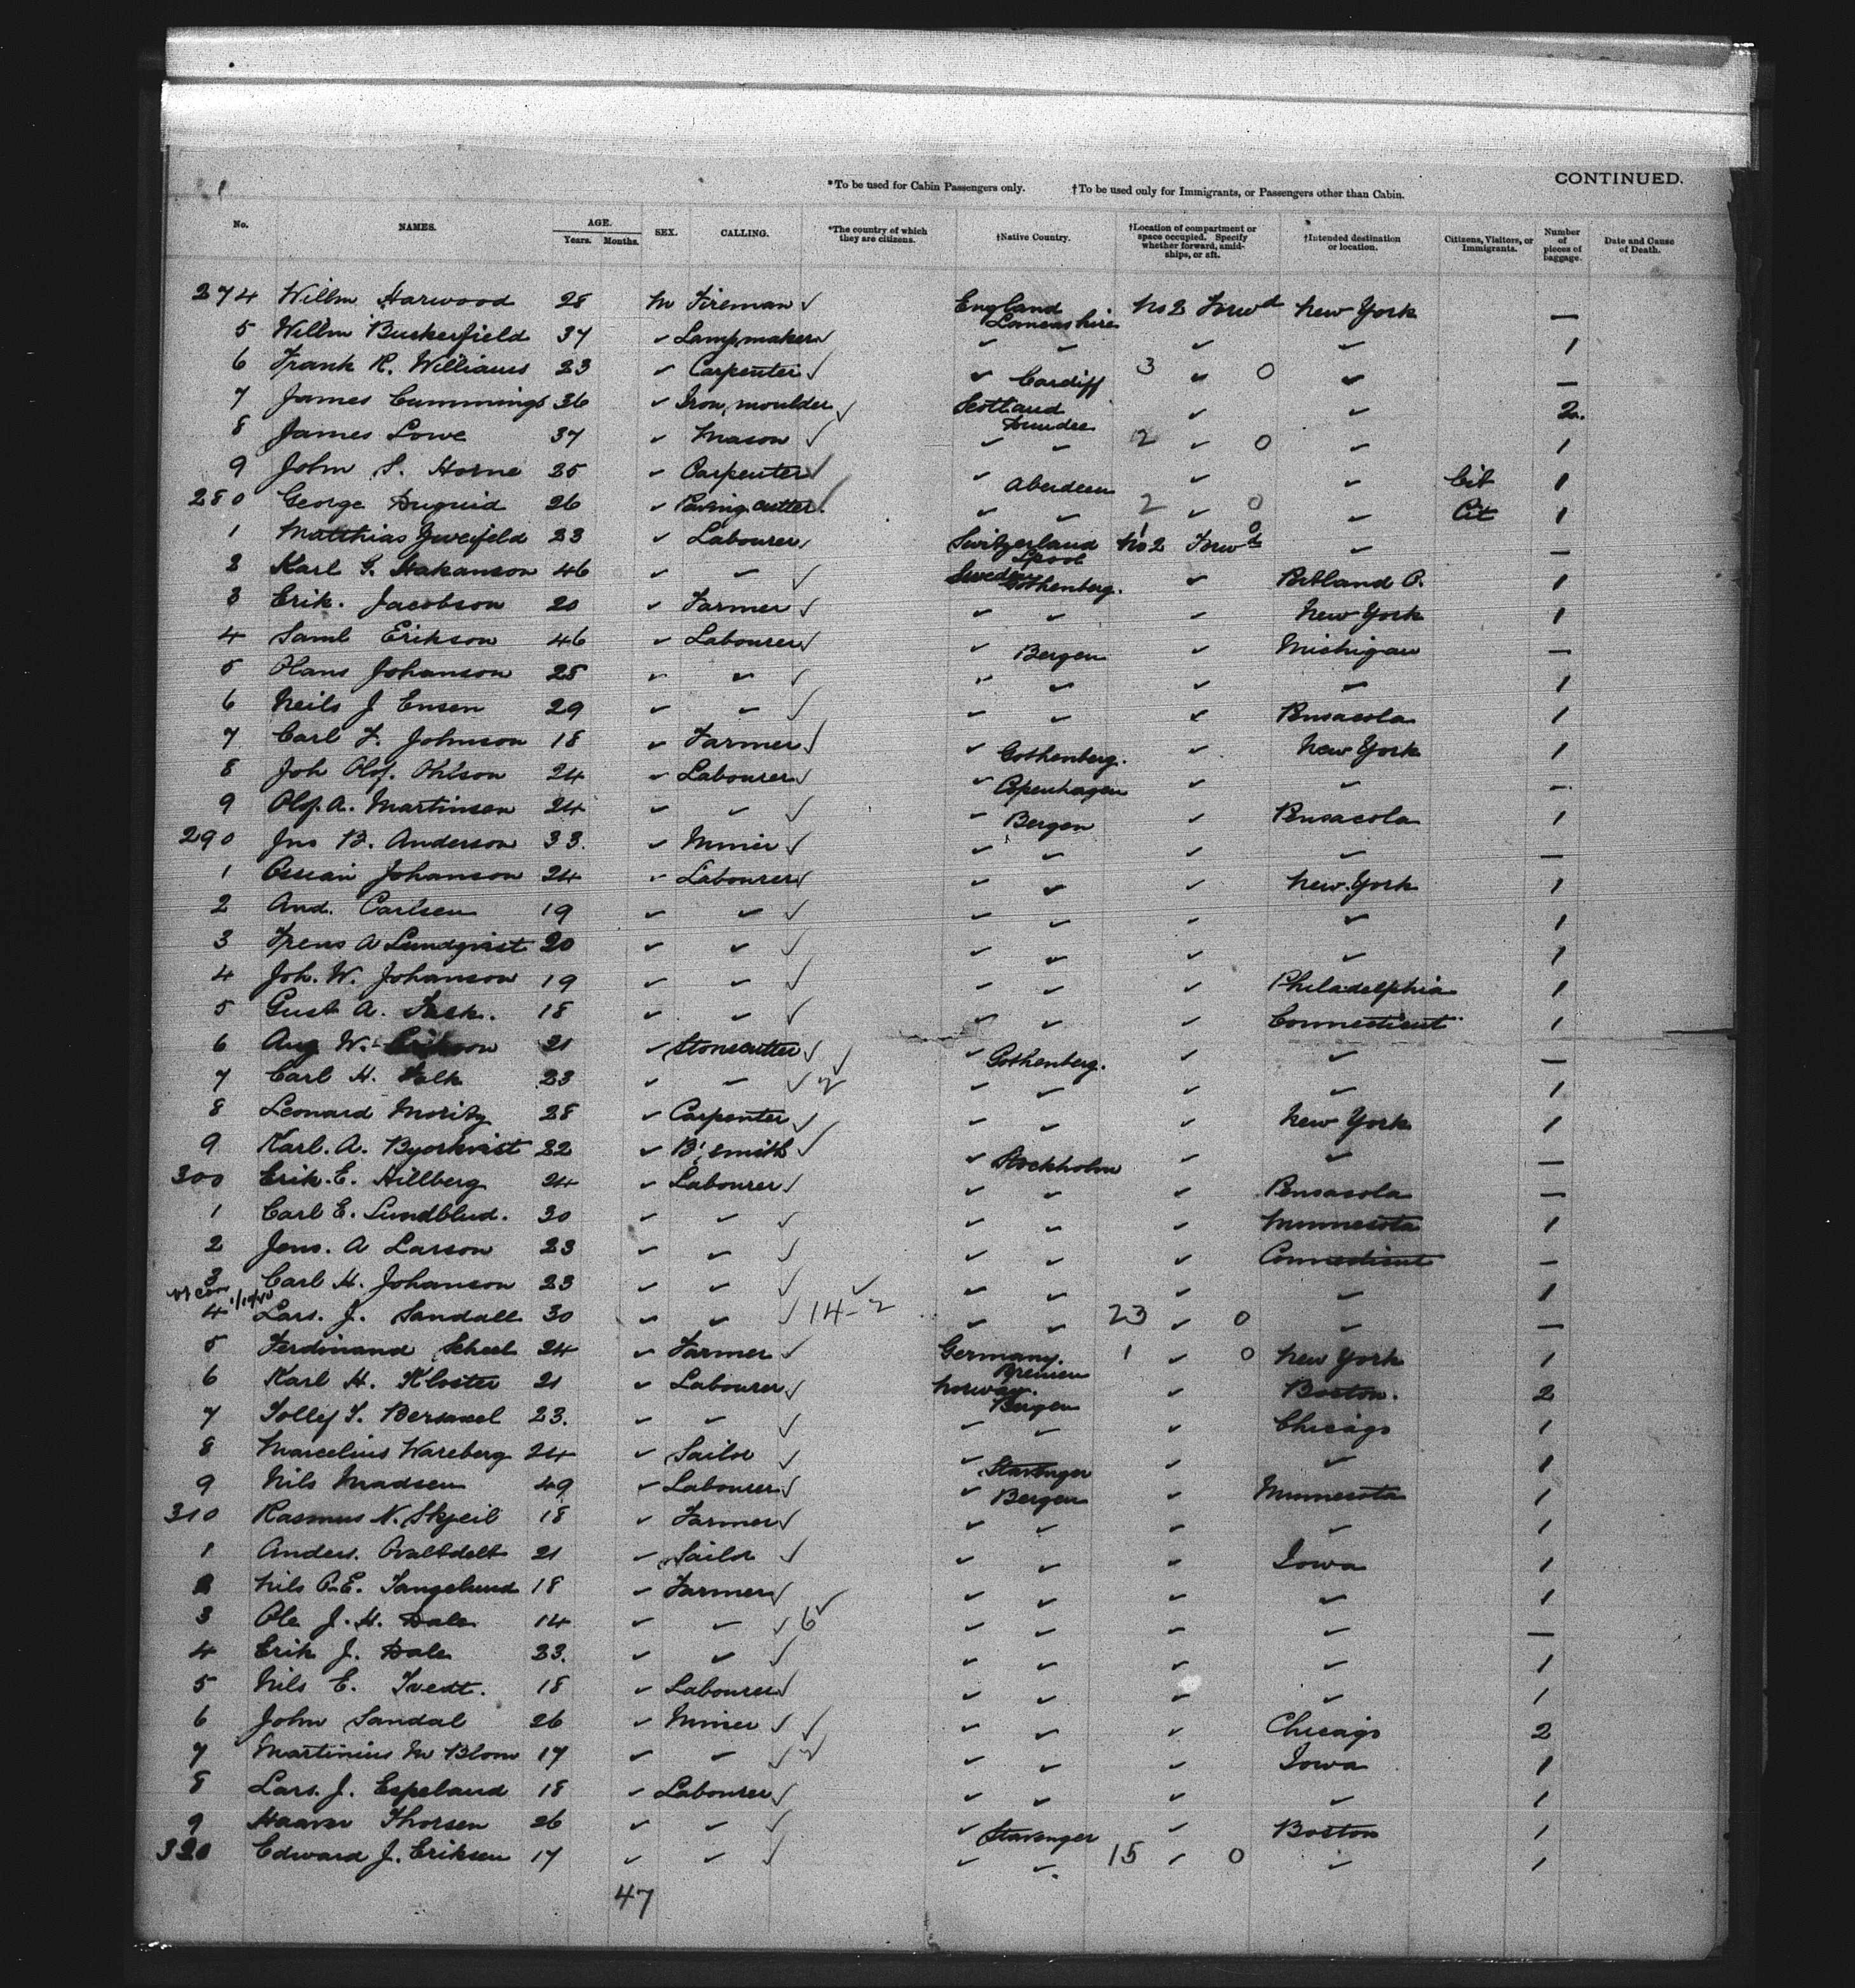 CONTINUED.
*To be used for Cabin Passengers only. †To be used only for Immigrants, or Passengers other than Cabin.
No. NAMES. AGE. Years. Months. SEX. CALLING. *The country of which they are citizens. †Native Country. †Location of compartment or space occupied. Specify whether forward, amidships, or aft. †Intended destination or location. Citizens, Visitors, or Immigrants. Number of pieces of baggage. Date and Cause of Death.
274 Willm Harwood 28 M Fireman ✓ England Lancashire No 2 Forwd New York —
5 Willm Buskerfield 37 ✓ Lampmaker ✓ ✓ ✓ ✓ ✓ 1
6 Frank R. Williams 23 ✓ Carpenter ✓ ✓ Cardiff 3 ✓ 0 ✓ —
7 James Cummings 36 ✓ Iron moulder ✓ Scotland Dundee ✓ ✓ 2
8 James Lowe 37 ✓ Mason ✓ ✓ ✓ 2 ✓ 0 ✓ 1
9 John S. Horne 25 ✓ Carpenter ✓ ✓ Aberdeen ✓ ✓ Cit 1
280 George Duguid 26 ✓ Paving cutter ✓ ✓ ✓ 2 ✓ 0 ✓ Cit 1
1 Matthias Zweifeld 23 ✓ Labourer Switzerland Lpool No 2 Forwd ✓ —
2 Karl G. Hakanson 46 ✓ ✓ ✓ Sweden Gothenberg. ✓ Portland O. 1
3 Erik. Jacobson 20 ✓ Farmer ✓ ✓ ✓ ✓ New York 1
4 Saml Erikson 46 ✓ Labourer ✓ ✓ Bergen ✓ Michigan —
5 Olans Johanson 28 ✓ ✓ ✓ ✓ ✓ ✓ ✓ 1
6 Neils J Ensen 29 ✓ ✓ ✓ ✓ ✓ ✓ Pensacola 1
7 Carl F. Johnson 18 ✓ Farmer ✓ ✓ Gothenberg. ✓ New York 1
8 Joh Olof. Ohlson 24 ✓ Labourer ✓ ✓ Copenhagen ✓ ✓ —
9 Olof. A. Martinsen 24 ✓ ✓ ✓ ✓ Bergen ✓ Pensacola 1
290 Jno B. Anderson 33. ✓ Miner ✓ ✓ ✓ ✓ ✓ —
1 Ossian Johanson 24 ✓ Labourer ✓ ✓ ✓ ✓ New York 1
2 And. Carlsen 19 ✓ ✓ ✓ ✓ ✓ ✓ ✓ 1
3 A Lundqvist 20 ✓ ✓ ✓ ✓ ✓ ✓ ✓ 1
4 Joh. W. Johanson 19 ✓ ✓ ✓ ✓ ✓ ✓ Philadelphia 1
5 Gust A. 18 ✓ ✓ ✓ ✓ ✓ ✓ Connecticut 1
6 Aug W. Erikson 21 ✓ Stonecutter ✓ ✓ ✓ Gothenberg. ✓ ✓ —
7 Carl H. Falk 23 ✓ ✓ ✓ 2 ✓ ✓ ✓ ✓ 1
8 Leonard Moritz 28 ✓ Carpenter ✓ ✓ ✓ ✓ New York 1
9 Karl. A. Byorkvist 22 ✓ B'smith ✓ ✓ Stockholm ✓ ✓ —
300 Erik. E. Hillberg 24 ✓ Labourer ✓ ✓ ✓ ✓ Pensacola —
1 Carl E. Lundblud. 30 ✓ ✓ ✓ ✓ ✓ ✓ Minnesota 1
2 Jens. A Larson 23 ✓ ✓ ✓ ✓ ✓ ✓ Connecticut —
3 Carl H. Johanson 23 ✓ ✓ ✓ ✓ ✓ ✓ ✓ ✓ 1
4 Lars. J. Sandall 30 ✓ ✓ ✓ 14-2 ✓ ✓ 23 ✓ 0 ✓ —
5 Ferdinand Scheel 24 ✓ Farmer ✓ Germany. Bremen 1 ✓ 0 New York 1
6 Karl H. Kloster 21 ✓ Labourer ✓ Norway. Bergen ✓ Boston. 2
7 23. ✓ ✓ ✓ ✓ ✓ ✓ Chicago 1
8 Marcelius Wareberg 24 ✓ Sailor ✓ ✓ Stavanger ✓ ✓ 1
9 Nils Madsen 49 ✓ Labourer ✓ ✓ Bergen ✓ Minnesota 1
310 Rasmus N. Skjeil 18 ✓ Farmer ✓ ✓ ✓ ✓ ✓ 1
1 Anders. 21 ✓ Sailor ✓ ✓ ✓ ✓ Iowa 1
2 Nils O.E. Tangelund 18 ✓ Farmer ✓ ✓ ✓ ✓ ✓ 1
3 Ole J. H. Dale 14 ✓ ✓ ✓ 6 ✓ ✓ ✓ ✓ ✓ —
4 Erik J. Dale 23. ✓ ✓ ✓ ✓ ✓ ✓ ✓ 1
5 Nils E. Tvedt. 18 ✓ Labourer ✓ ✓ ✓ ✓ ✓ 1
6 John Sandal 26 ✓ Miner ✓ ✓ ✓ ✓ ✓ Chicago 2
7 Martinius M Blom 17 ✓ ✓ ✓ 2 ✓ ✓ ✓ Iowa 1
8 Lars. J. Espeland 18 ✓ Labourer ✓ ✓ ✓ ✓ ✓ 1
9 Haaver Thorsen 26 ✓ ✓ ✓ ✓ Stavanger ✓ Boston 1
320 Edward J. Eriksen 17 ✓ ✓ ✓ ✓ ✓ 15 ✓ 0 ✓ 1
47